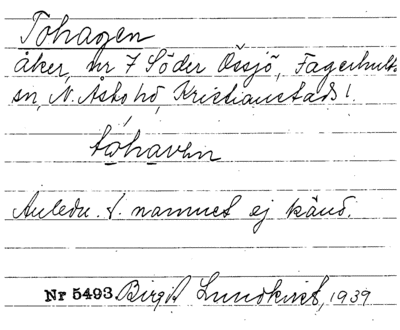 Tohagen
åker, nr 7 Söder Össjö, Fagerhults
sn, N. Åsbo hd, Kristianstads l.
tohaven
Anledn. t. namnet ej känd.
Nr 5493 Birgit Lundkvist, 1939